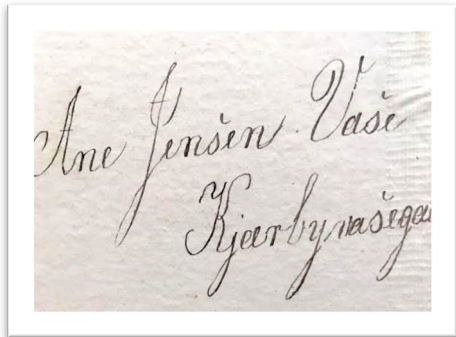 Ane Jensen. Vase
Kjærbyvasega